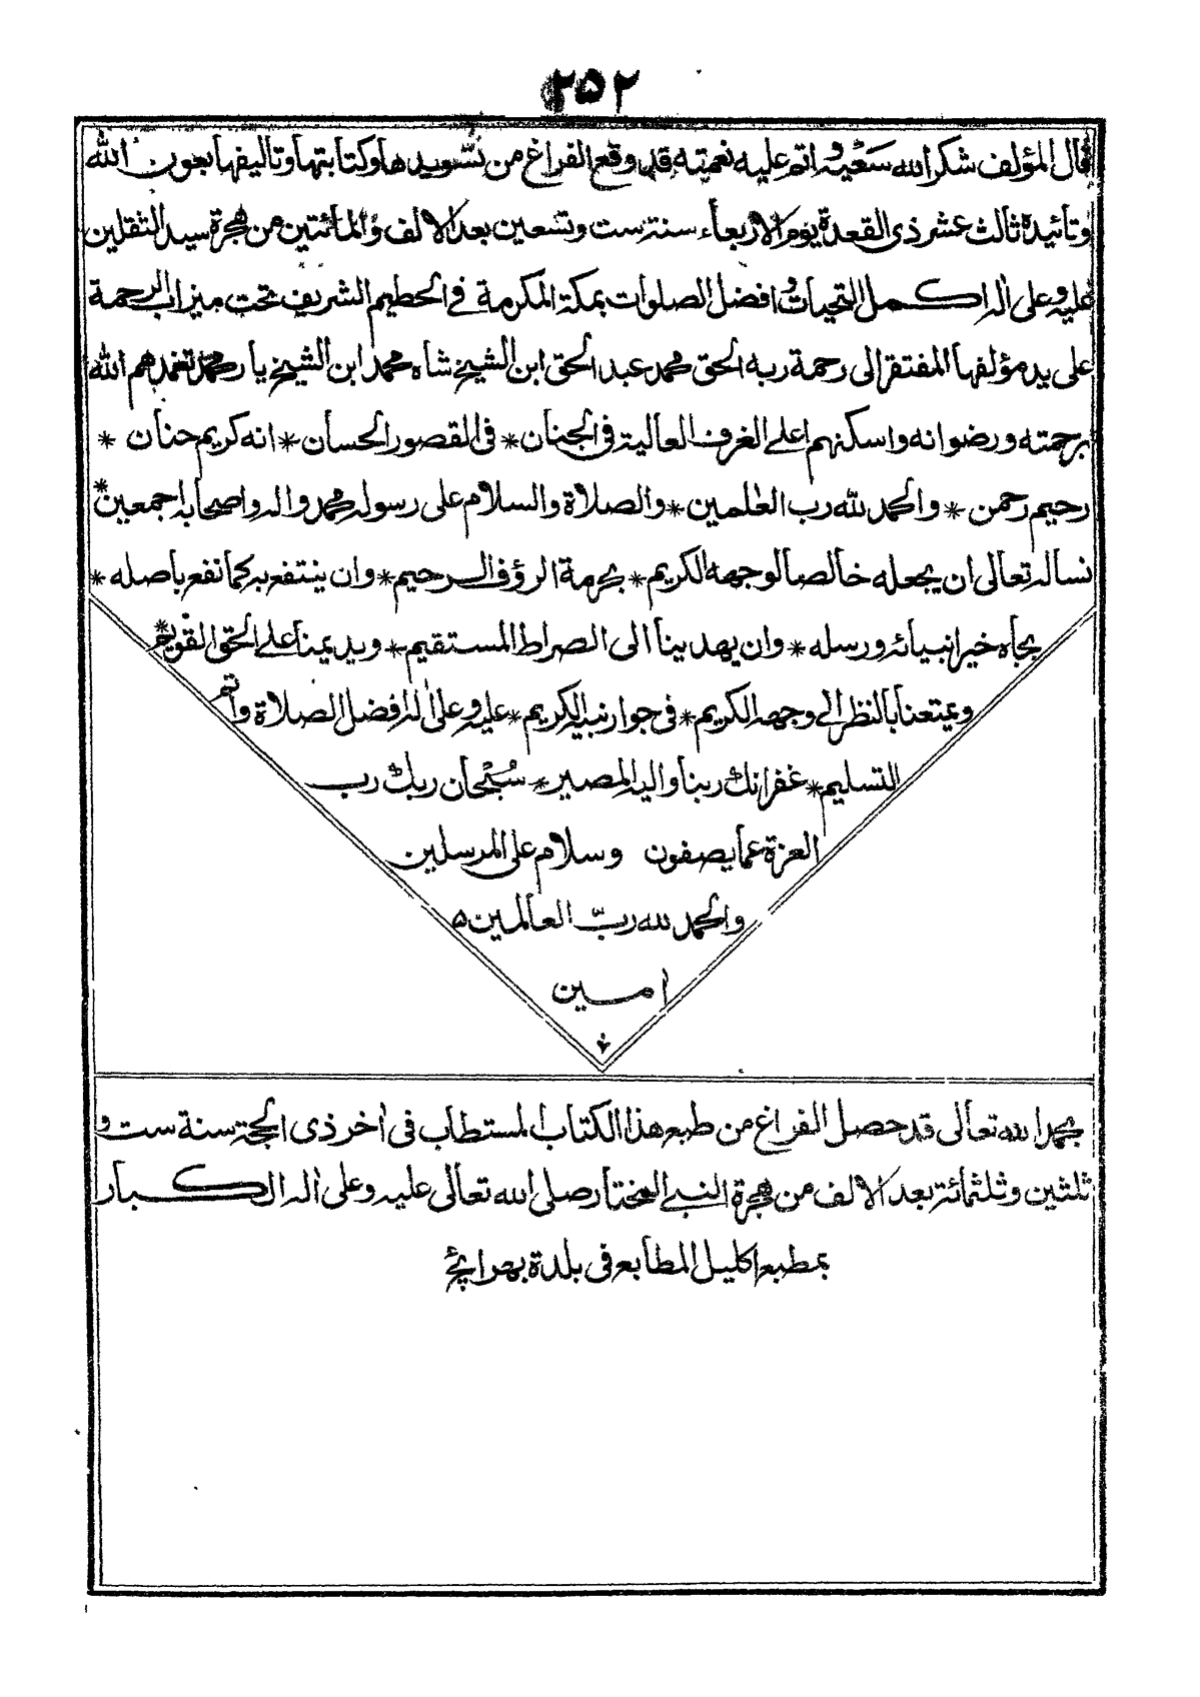 ۲۵۲
قال المؤلف شكر الله سعيه واتم عليه نعمته قد وقع الفراغ من تسويدها وكتابتها وتاليفها بعون الله
وتائيدة ثالث عشر ذى القعدة يوم الاربعاء سنة ست وتسعين بعد الالف والمائتين من هجرة سيد الثقلين
عليه وعلى اٰله اكمل التحيات وافضل الصلوات بمكة المكرمة فى الحطيم الشريف تحت ميزاب الرحمة
على يد مؤلفها المفتقر الى رحمة ربه الحق محمد عبد الحق ابن الشيخ شاه محمد ابن الشيخ يار محمد تغمدهم الله
برحمته ورضوانه واسكنهم اعلے الغرف العالية فى الجنان * فى القصور الحسان * انه كريم حنان *
رحيم رحمن * والحمد لله رب العٰلمين * والصلاة والسلام على رسوله محمد واله واصحابه اجمعين *
نساله تعالى ان يجعله خالصا لوجهه الكريم * بحرمة الرؤف الرحيم * وان ينتفع به كما نفع باصله *
بجاه خير انبيائه ورسله * وان يهدينا الى الصراط المستقيم * ويديمنا علے الحق القويم *
ويمتعنا بالنظر الے وجهه الكريم * فى جوار نبيه الكريم * عليه وعلى اٰله افضل الصلاة واتم
التسليم * غفرانك ربنا واليه المصير * سُبْحان ربك رب
العزة عما يصفون وسلام على المرسلين
والحمد لله ربّ العالمين ۵
اٰمين
بحمد الله تعالى قد حصل الفراغ من طبع هذا الكتاب المستطاب فى اٰخر ذى الحجة سنة ست و
ثلثين وثلثمائة بعد الالف من هجرة النبے المختار صلى الله تعالى عليه وعلى اٰله الكبار
بمطبع اكليل المطابع فى بلدة بهرائچ